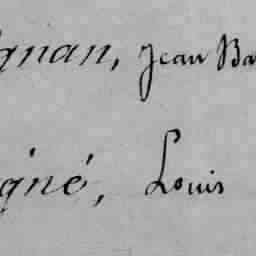 gnan, Jean Ba
igné, Louis